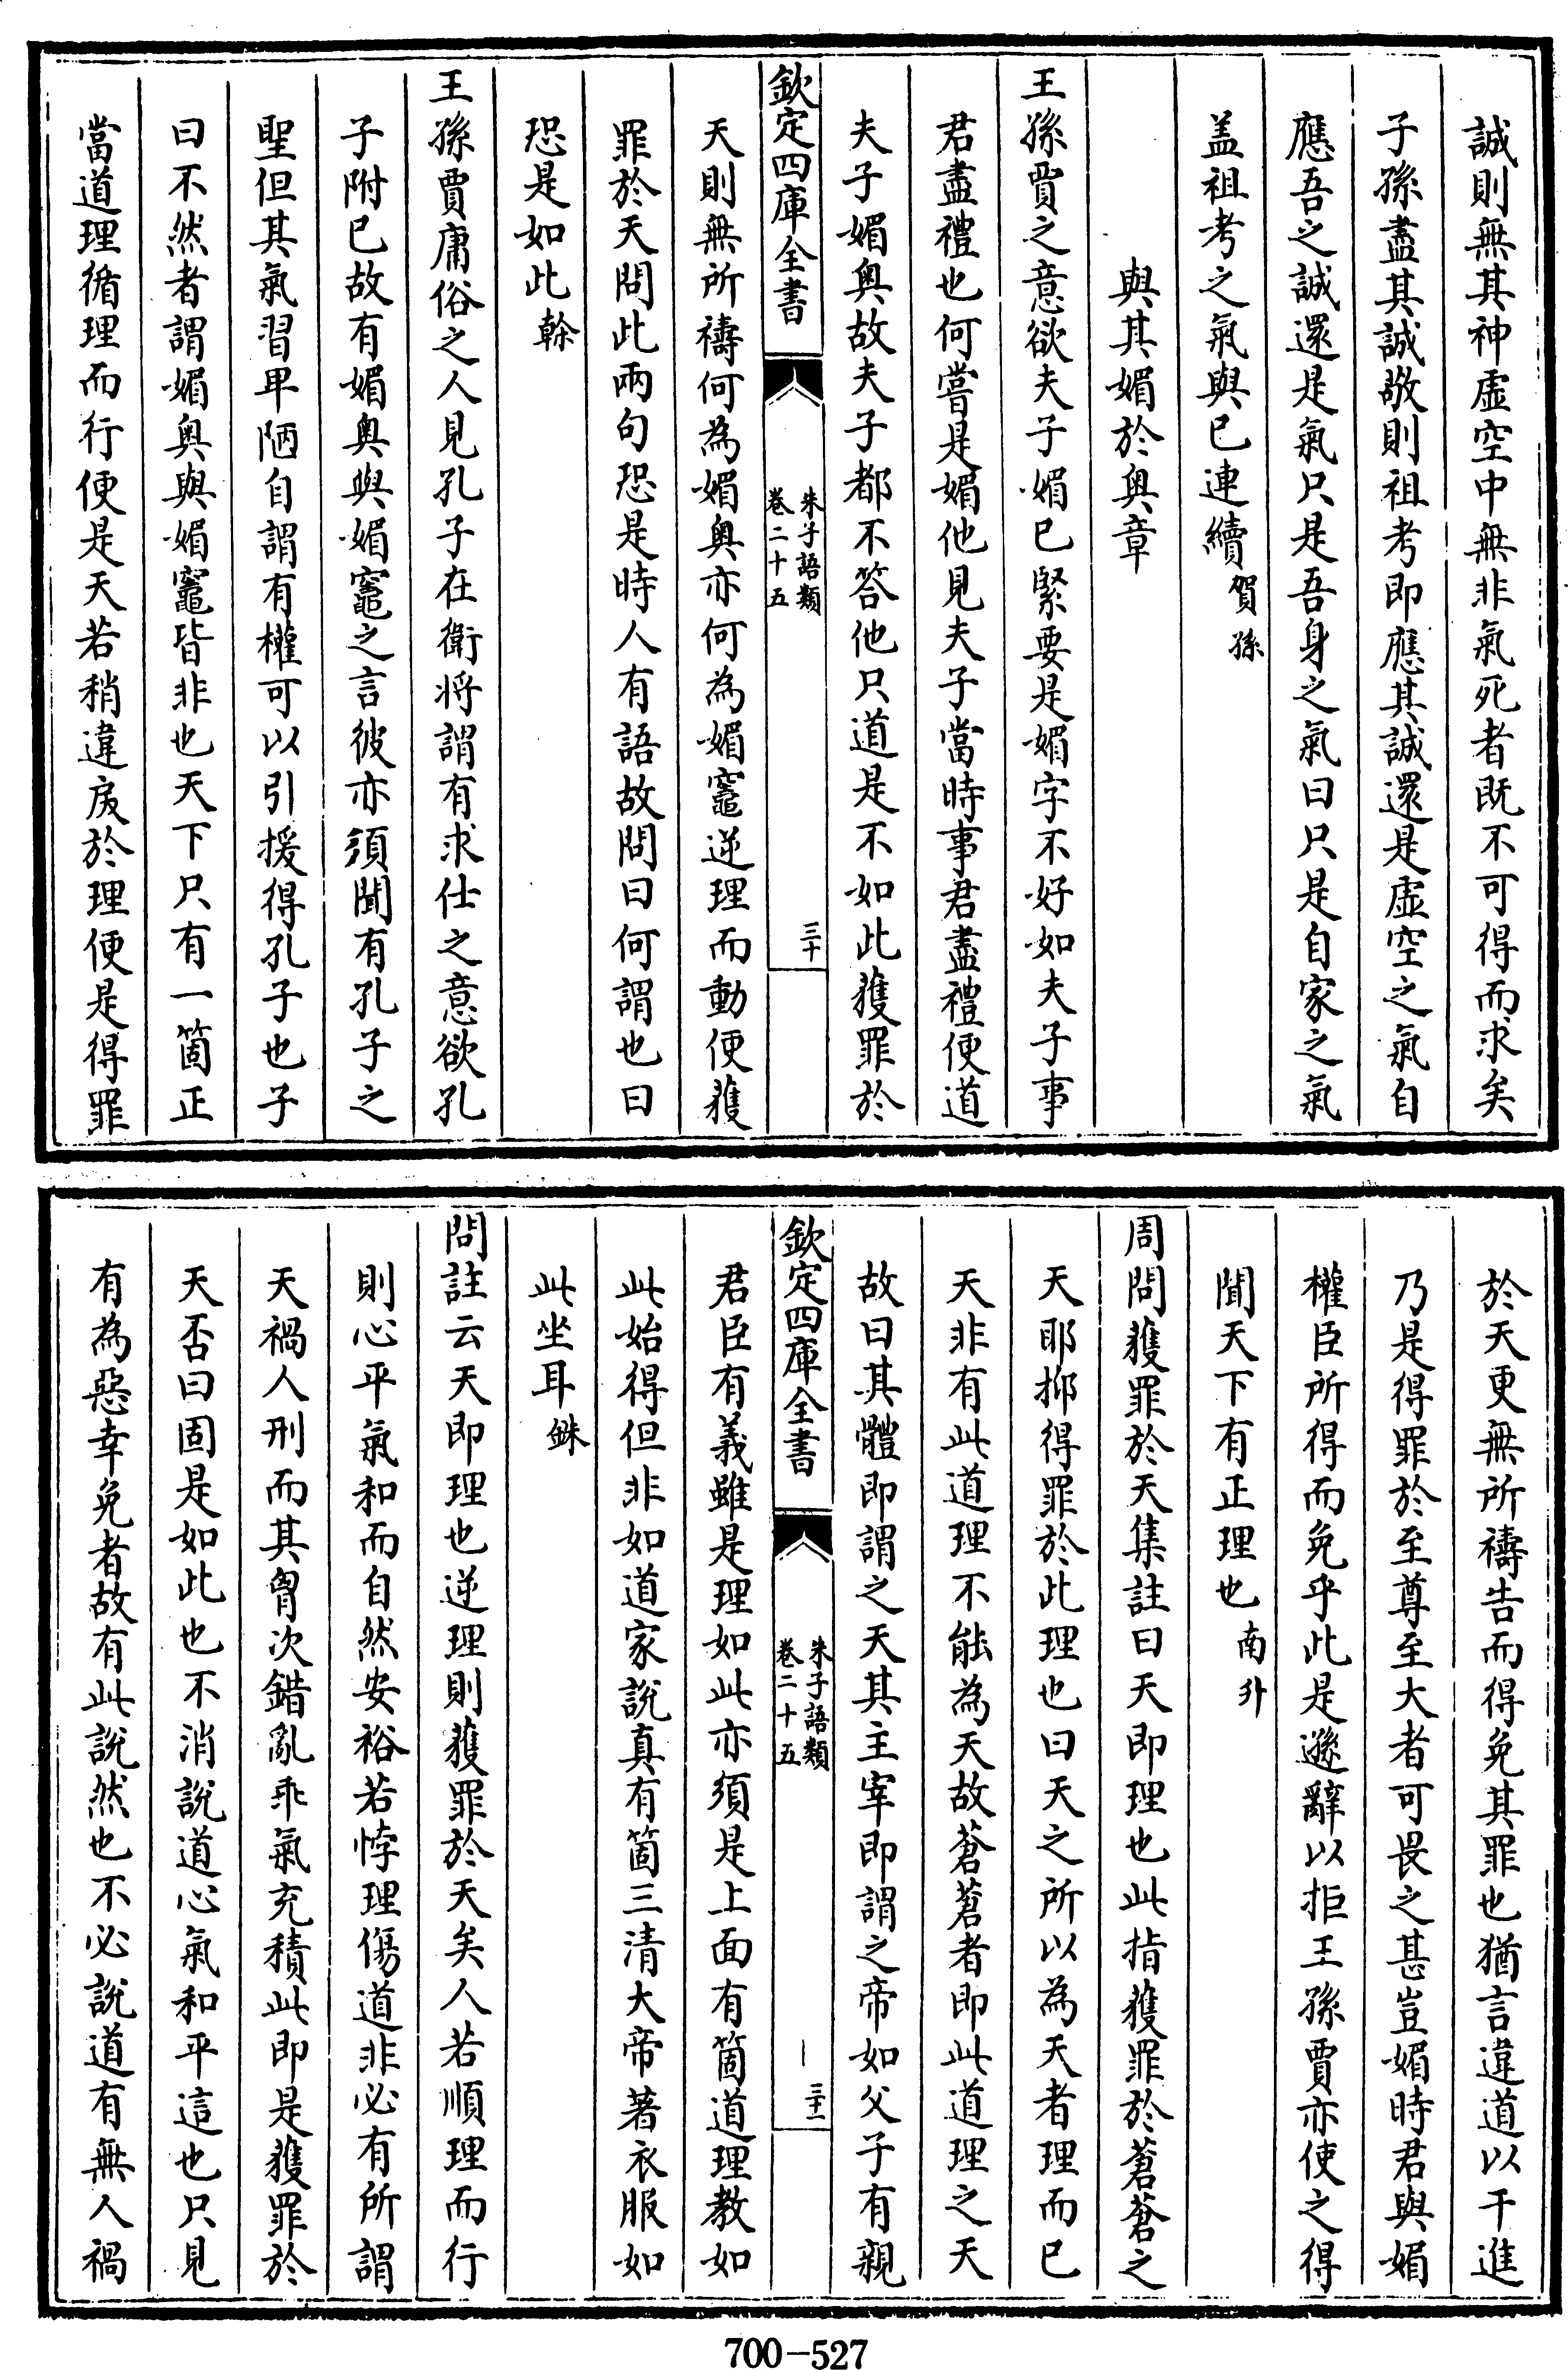 誠則無其神虛空中無非氣死者既不可得而求矣
子孫盡其誠敬則祖考即應其誠還是虛空之氣自
應吾之誠還是氣只是吾身之氣曰只是自家之氣
盖祖考之氣與已連續賀孫
與其媚於奧章
王孫賈之意欲夫子媚已緊要是媚字不好如夫子事
君盡禮也何嘗是媚他見夫子當時事君盡禮便道
夫子媚奧故夫子都不答他只道是不如此獲罪於
欽定四庫全書
朱子語類
卷二十五
三十
天則無所禱何為媚奧亦何為媚竈逆理而動便獲
罪於天問此兩句恐是時人有語故問曰何謂也曰
恐是如此榦
王孫賈庸俗之人見孔子在衛将謂有求仕之意欲孔
子附已故有媚奧與媚竈之言彼亦須聞有孔子之
聖但其氣習卑陋自謂有權可以引援得孔子也子
曰不然者謂媚奧與媚竈皆非也天下只有一箇正
當道理循理而行便是天若稍違戾於理便是得罪
於天更無所禱告而得免其罪也猶言違道以干進
乃是得罪於至尊至大者可畏之甚豈媚時君與媚
權臣所得而免乎此是遜辭以拒王孫賈亦使之得
聞天下有正理也南升
周問獲罪於天集註曰天即理也此指獲罪於蒼蒼之
天耶抑得罪於此理也曰天之所以為天者理而已
天非有此道理不能為天故蒼蒼者即此道理之天
故曰其體即謂之天其主宰即謂之帝如父子有親
欽定四庫全書
朱子語類
卷二十五
三十一
君臣有義雖是理如此亦須是上面有箇道理教如
此始得但非如道家說真有箇三清大帝著衣服如
此坐耳銖
問註云天即理也逆理則獲罪於天矣人若順理而行
則心平氣和而自然安裕若悖理傷道非必有所謂
天禍人刑而其胷次錯亂乖氣充積此即是獲罪於
天否曰固是如此也不消說道心氣和平這也只見
有為惡幸免者故有此說然也不必說道有無人禍
700-527